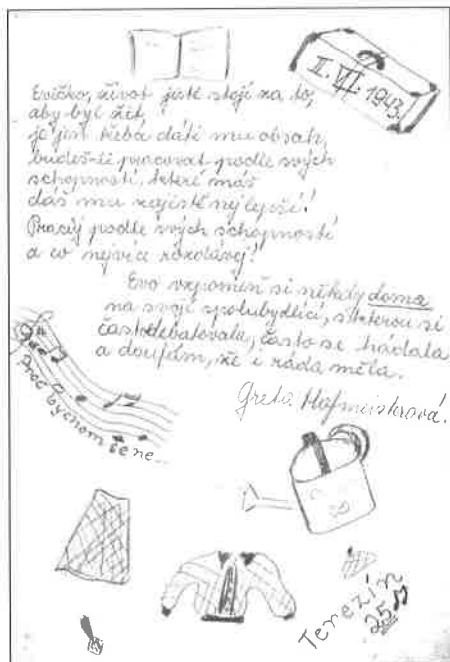 II. VII. 1943.
Evičko, život jistě stojí za to,
aby byl žit,
je jen třeba dáti mu obsah,
budeš-li pracovat podle svých
schopností, které máš
dáš mu zajisté nejlepší!
Pracuj podle svých schopností
a co nejvíce zdolávej!
Evo vzpomeň si někdy doma
na svoji spolubydlící, s kterou si
často debatovala, často se hádala
a doufám, že i ráda měla.
Greta Hofmeisterová.
Proč bychom se ne...
Terezín
25